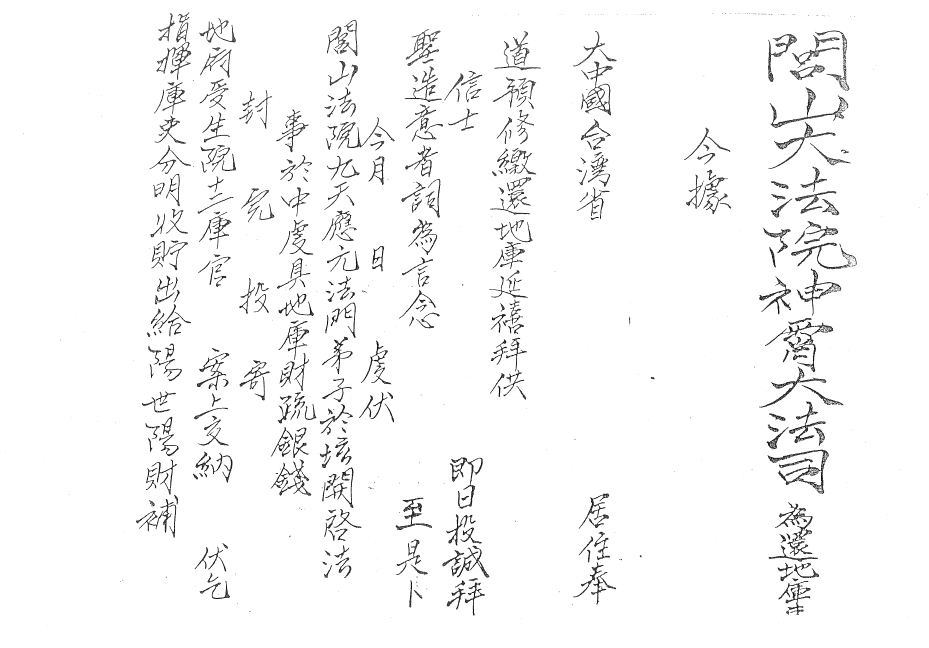 閭山大法院神霄大法司 為還地庫事
今據
大中國台灣省 居住奉
道預修繳還地庫延禧拜供
信士 即日投誠拜
聖造意者詞為言念 至是卜
今月 日 虔伏
閭山法院九天應元法門弟子於壇開啓法
事於中虔具地庫財疏銀錢
封 完 投 寄
地府受生院十二庫官 案上交納 伏乞
指揮庫吏分明收貯出給陽世陽財補